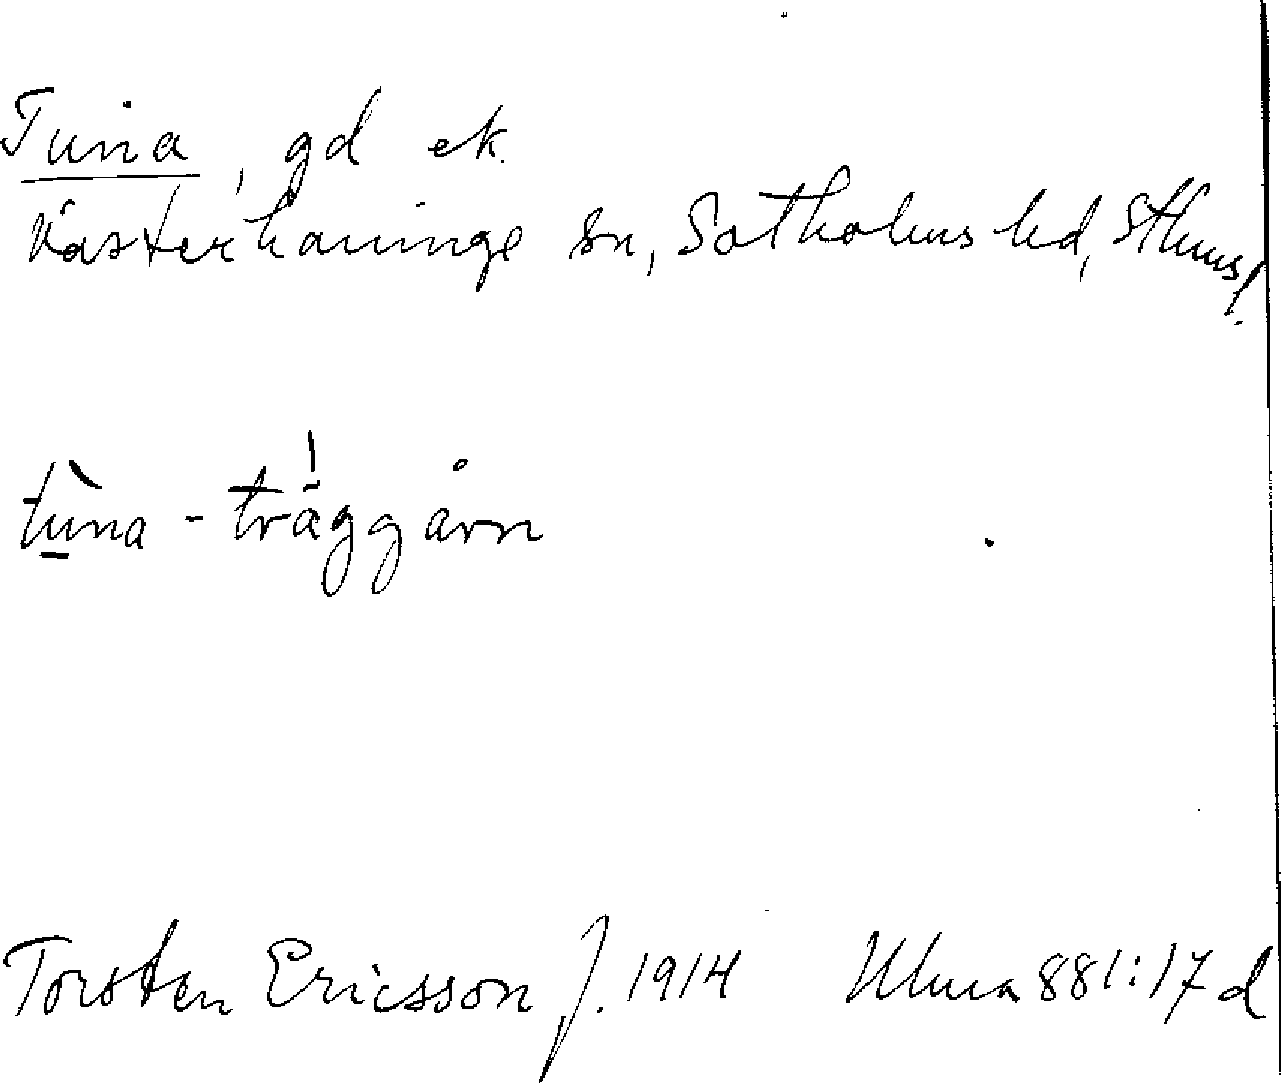 Tuna, gd ek.
Västerhaninge sn, Sotholms hd, Sthms l.
tùna - träggårn
Torsten Ericsson f. 1914 Uluma 881:17 d